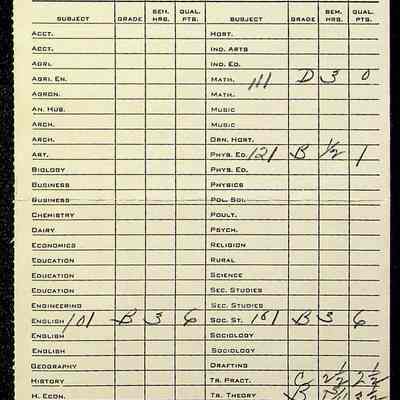 SUBJECT GRADE SEM. HRS. QUAL. PTS. SUBJECT GRADE SEM. HRS. QUAL. PTS.
ACCT. HORT.
ACCT. IND. ARTS
AGRI. IND. ED.
AGRI. EN. MATH. 111 D 3 0
AGRON. MATH.
AN. HUS. MUSIC
ARCH. MUSIC
ARCH. ORN. HORT.
ART. PHYS. ED. 121 B 1/2 1
BIOLOGY PHYS. ED.
BUSINESS PHYSICS
BUSINESS POL. SCI.
CHEMISTRY POULT.
DAIRY PSYCH.
ECONOMICS RELIGION
EDUCATION RURAL
EDUCATION SCIENCE
EDUCATION SEC. STUDIES
ENGINEERING SEC. STUDIES
ENGLISH 101 B 3 6 SOC. ST. 181 B 3 6
ENGLISH SOCIOLOGY
ENGLISH SOCIOLOGY
GEOGRAPHY DRAFTING
HISTORY TR. PRACT. C 2 1/2 2 1/2
H. ECON. TR. THEORY B